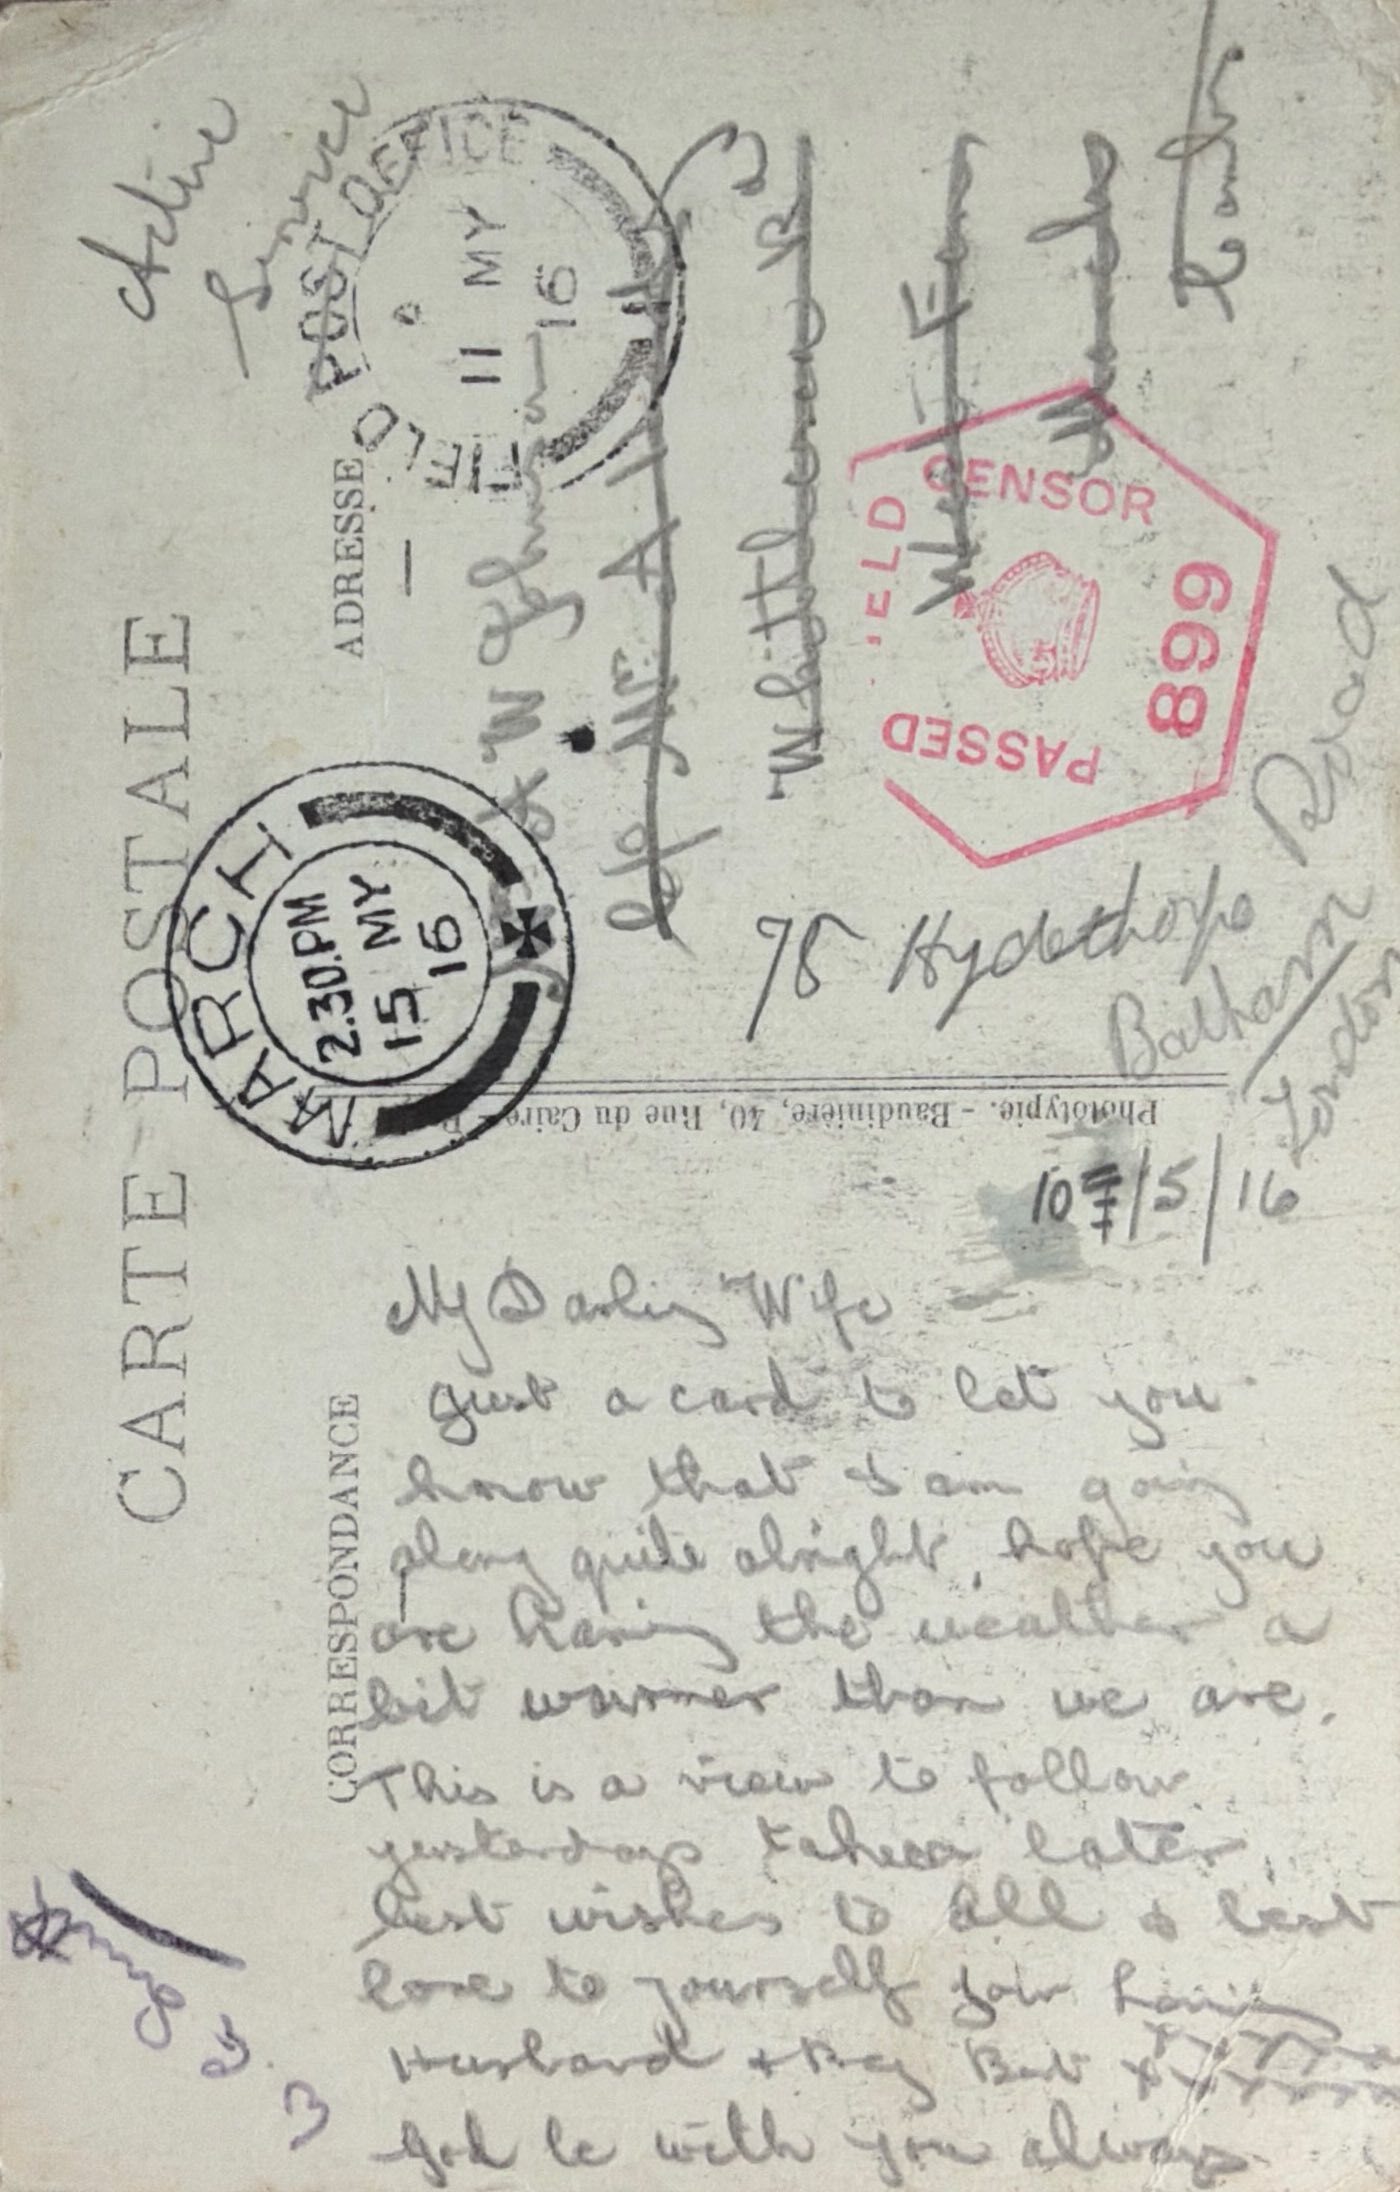 CARTE POSTALE
CORRESPONDANCE
ADRESSE
Active
Service
FIELD POST OFFICE
11 MY
16
MARCH
2.30.PM
15 MY
16
W Johnson
c/o Mr A
Whittlesea Rd
March
Cambs
PASSED
CENSOR
899
78 Hydethorpe Road
Balham
London
Phototypie. - Baudinière, 40, Rue du Caire
10/5/16
My Darling Wife
Just a card to let you
know that I am going
along quite alright, hope you
are having the weather a
bit warmer than we are.
This is a view to follow
yesterdays taken later
best wishes to all & best
love to yourself your loving
Husband & Boy Bert xxxxxx
God be with you always